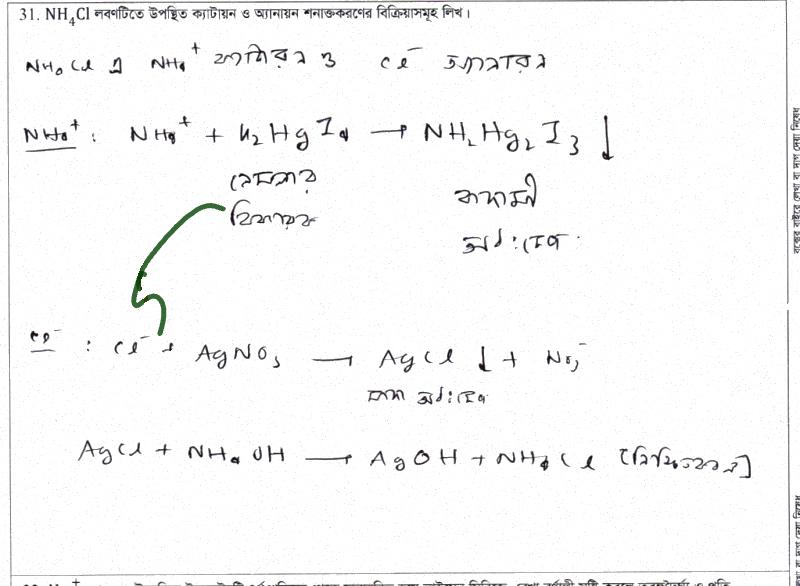 31. NH₄Cl লবণটিতে উপস্থিত ক্যাটায়ন ও অ্যানায়ন শনাক্তকরণের বিক্রিয়াসমূহ লিখ।
NH₄Cl এ NH₄⁺ ক্যাটায়ন ও Cl⁻ অ্যানায়ন
NH₄⁺ : NH₄⁺ + K₂HgI₄ → NH₂Hg₂I₃ ↓
নেসলার বাদামী
বিকারক অধঃক্ষেপ
Cl⁻ : Cl⁻ + AgNO₃ → AgCl ↓ + NO₃⁻
সাদা অধঃক্ষেপ
AgCl + NH₄OH → AgOH + NH₄Cl [নিশ্চিতকরণ]